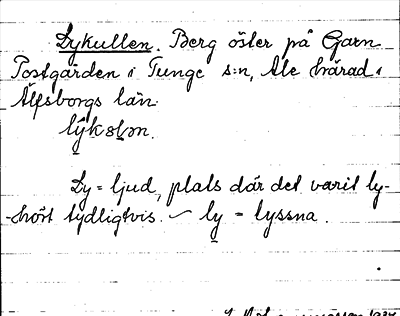 Lykullen. Berg öster på Garn
Postgården i Tunge s:n, Ale härad i
Älfsborgs län.
lýkələn.
Ly = ljud, plats där det varit ly-
-hört tydligtvis. ~ ly = lyssna.